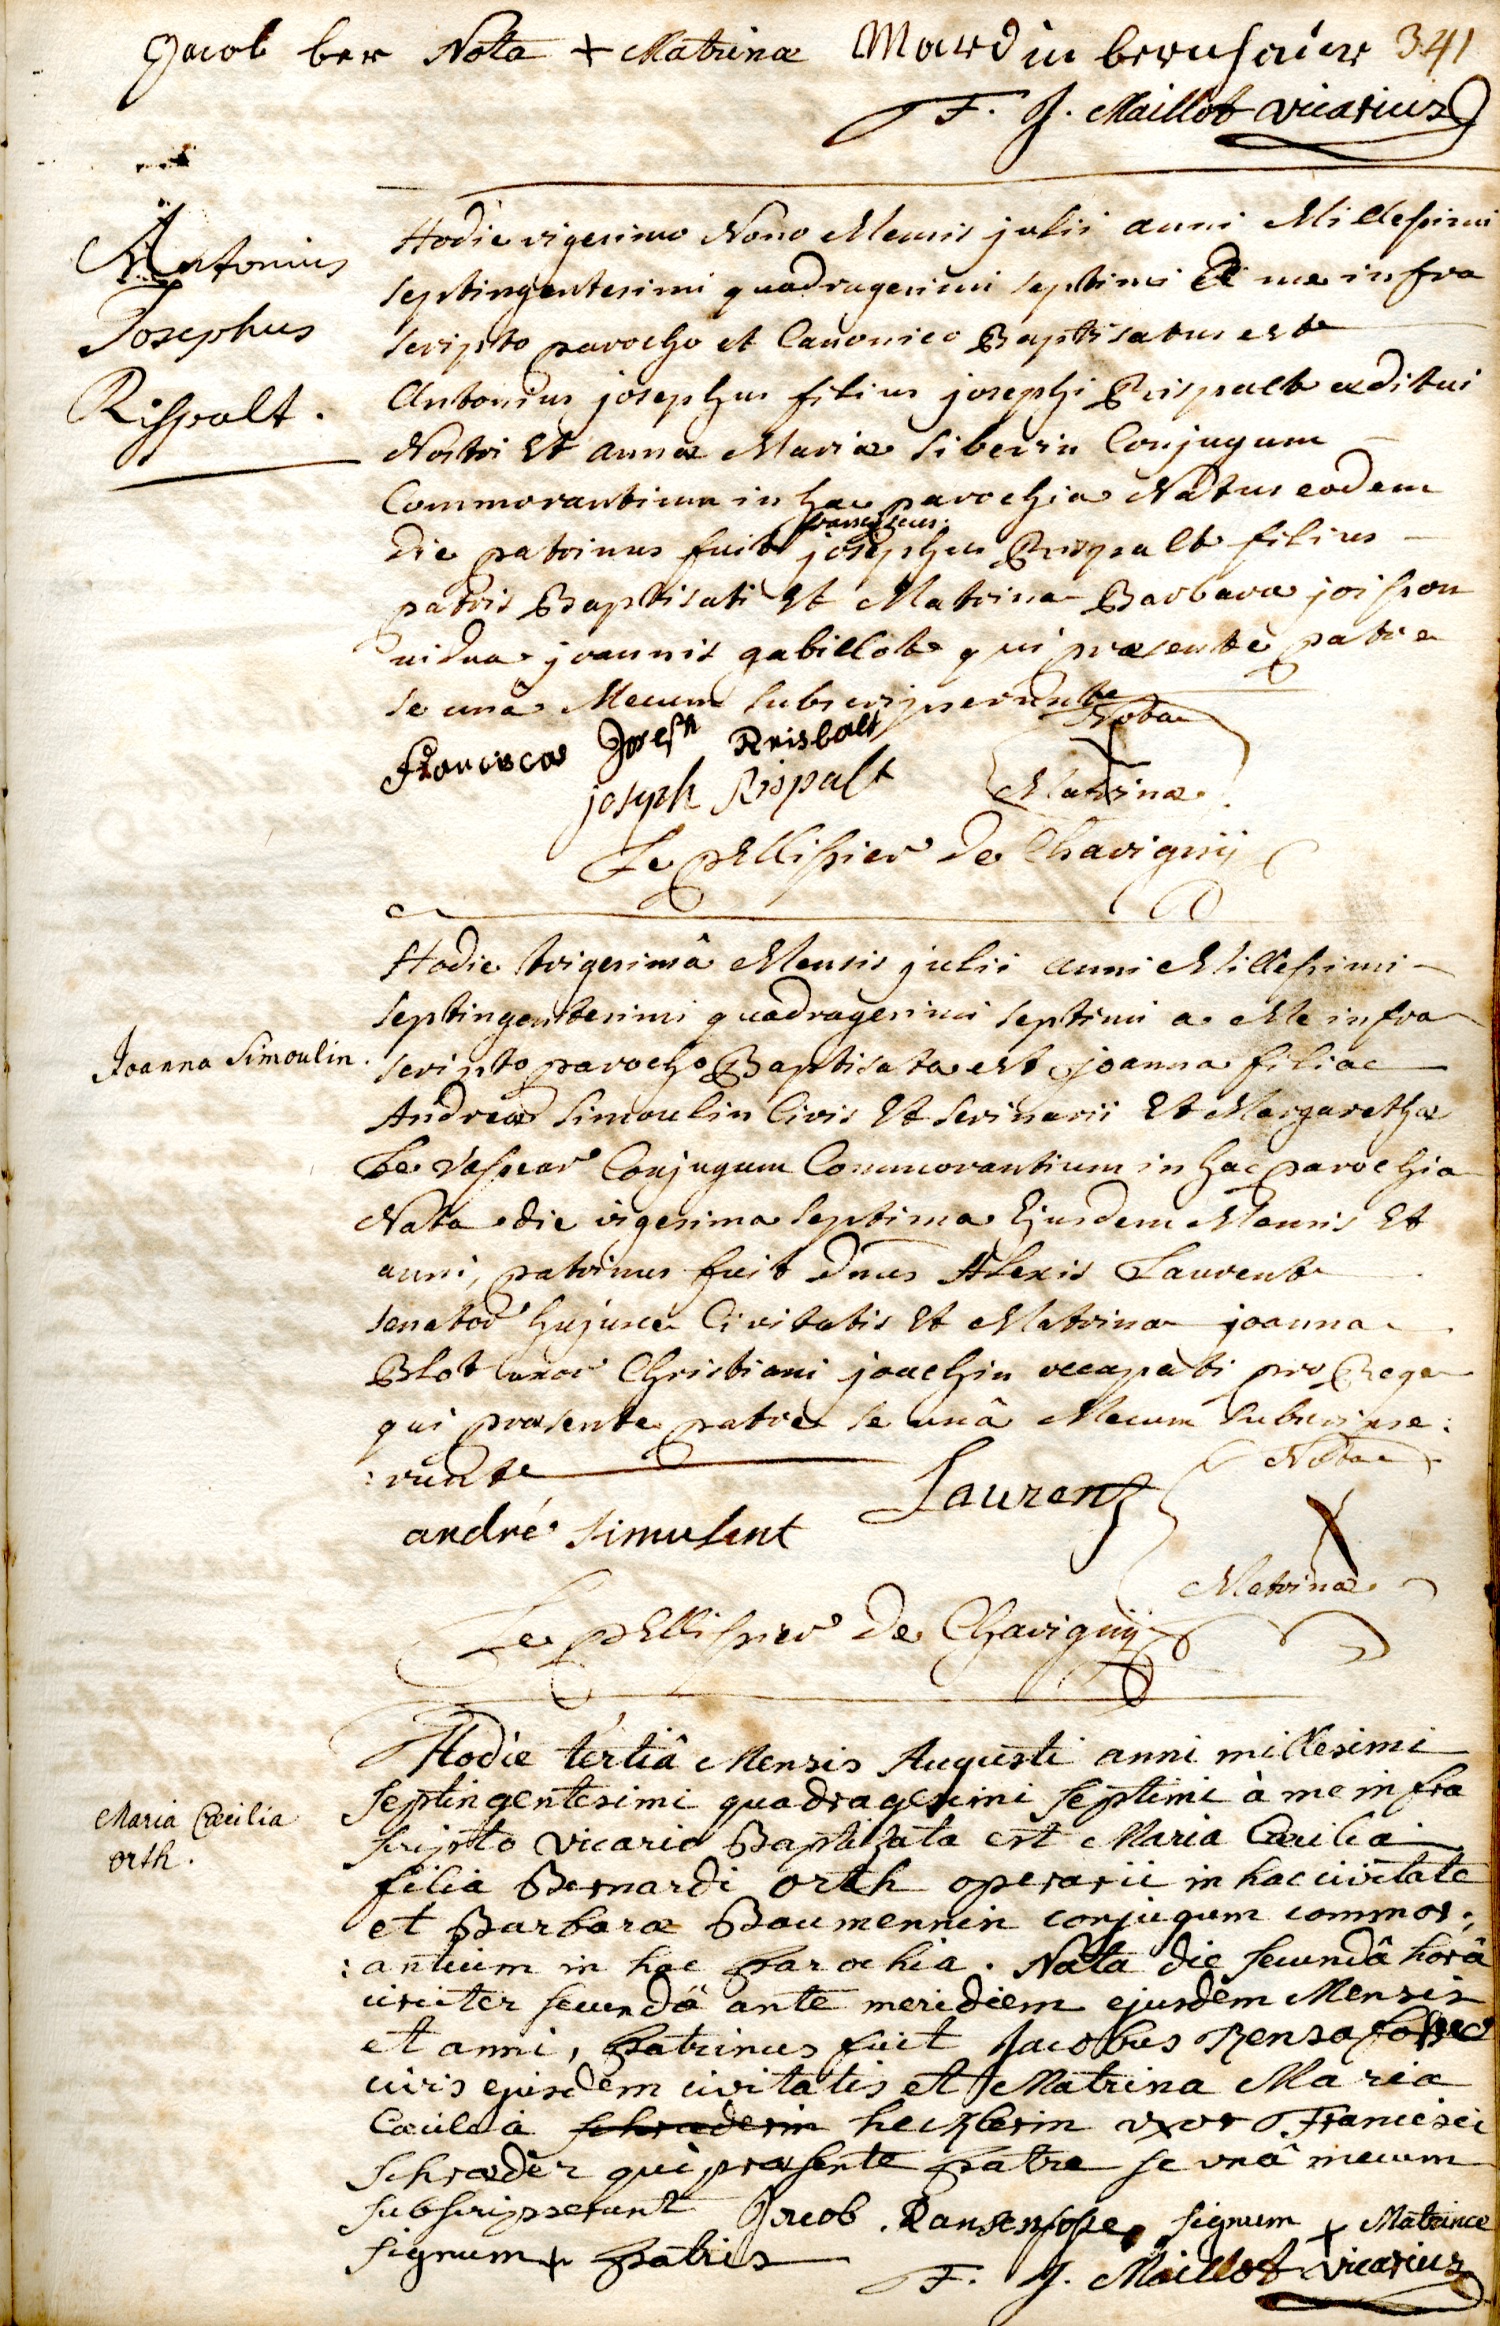 Jacob ber Nota + Matrinæ Mardin 341
F. J. Maillot vicarius
Antonius
Josephus
Rispalt.
Hodie vigesimo Nono Mensis julii anni Millesimi
septingentesimi quadragesimi septimi a me infra
scripto parocho et Canonico Baptisatus est
Antonius josephus filius josephi Rispalt æditui
Nostri Et annæ Mariæ Siberin Conjugum
Commorantium in hac parochia Natus eodem
franciscus
die patrinus fuit josephus Rispalt filius
patris Baptisati Et Matrina Barbara joisson
vidua joannis gabillot qui præsente patre
se unâ Mecum subscripserunt
Nota
Franciscos Joseph Risbalt
joseph Rispalt
Matrinæ
Le pEllissier de Chavignÿ
Joanna Simoulin.
Hodie trigesimâ Mensis julii anni Millesimi
septingentesimi quadragesimi septimi a Me infra
scripto parocho Baptisata est joanna filia
Andreæ Simoulin Civis Et Scrinarii Et Margarethæ
Le Vasseur Conjugum Commorantium in hac parochia
Nata die vigesima septima Ejusdem Mensis Et
anni, patrinus fuit dnus Alexis Laurent
senator hujusce Civitatis Et Matrina joanna
Blot uxor Christiani joachin occupati pro Rege
qui præsente patre se unâ Mecum subscripse:
:runt
Nota
Laurent
andré simulent
X
Matrinæ
Le pEllissier de Chavignÿ
Maria Cæcilia
orth.
Hodie tertiâ Mensis Augusti anni millesimi
septingentesimi quadragesimi septimi à me infra
scripto vicario Baptizata est Maria Cæcilia
filia Bernardi orth operarii in hac civitate
et Barbaræ Baumennin conjugum commor:
:antium in hac parochia. Nata die secundâ horâ
circiter secundâ ante meridiem ejusdem Mensis
et anni, patrinus fuit Jacobus
civis ejusdem civitatis et Matrina Maria
Cæcilia schraderin hecklerin uxor Francisci
Schræder qui præsente patre se unâ mecum
subscripserunt Jacob signum + Matrinæ
signum + patris
F. J. Maillot vicarius